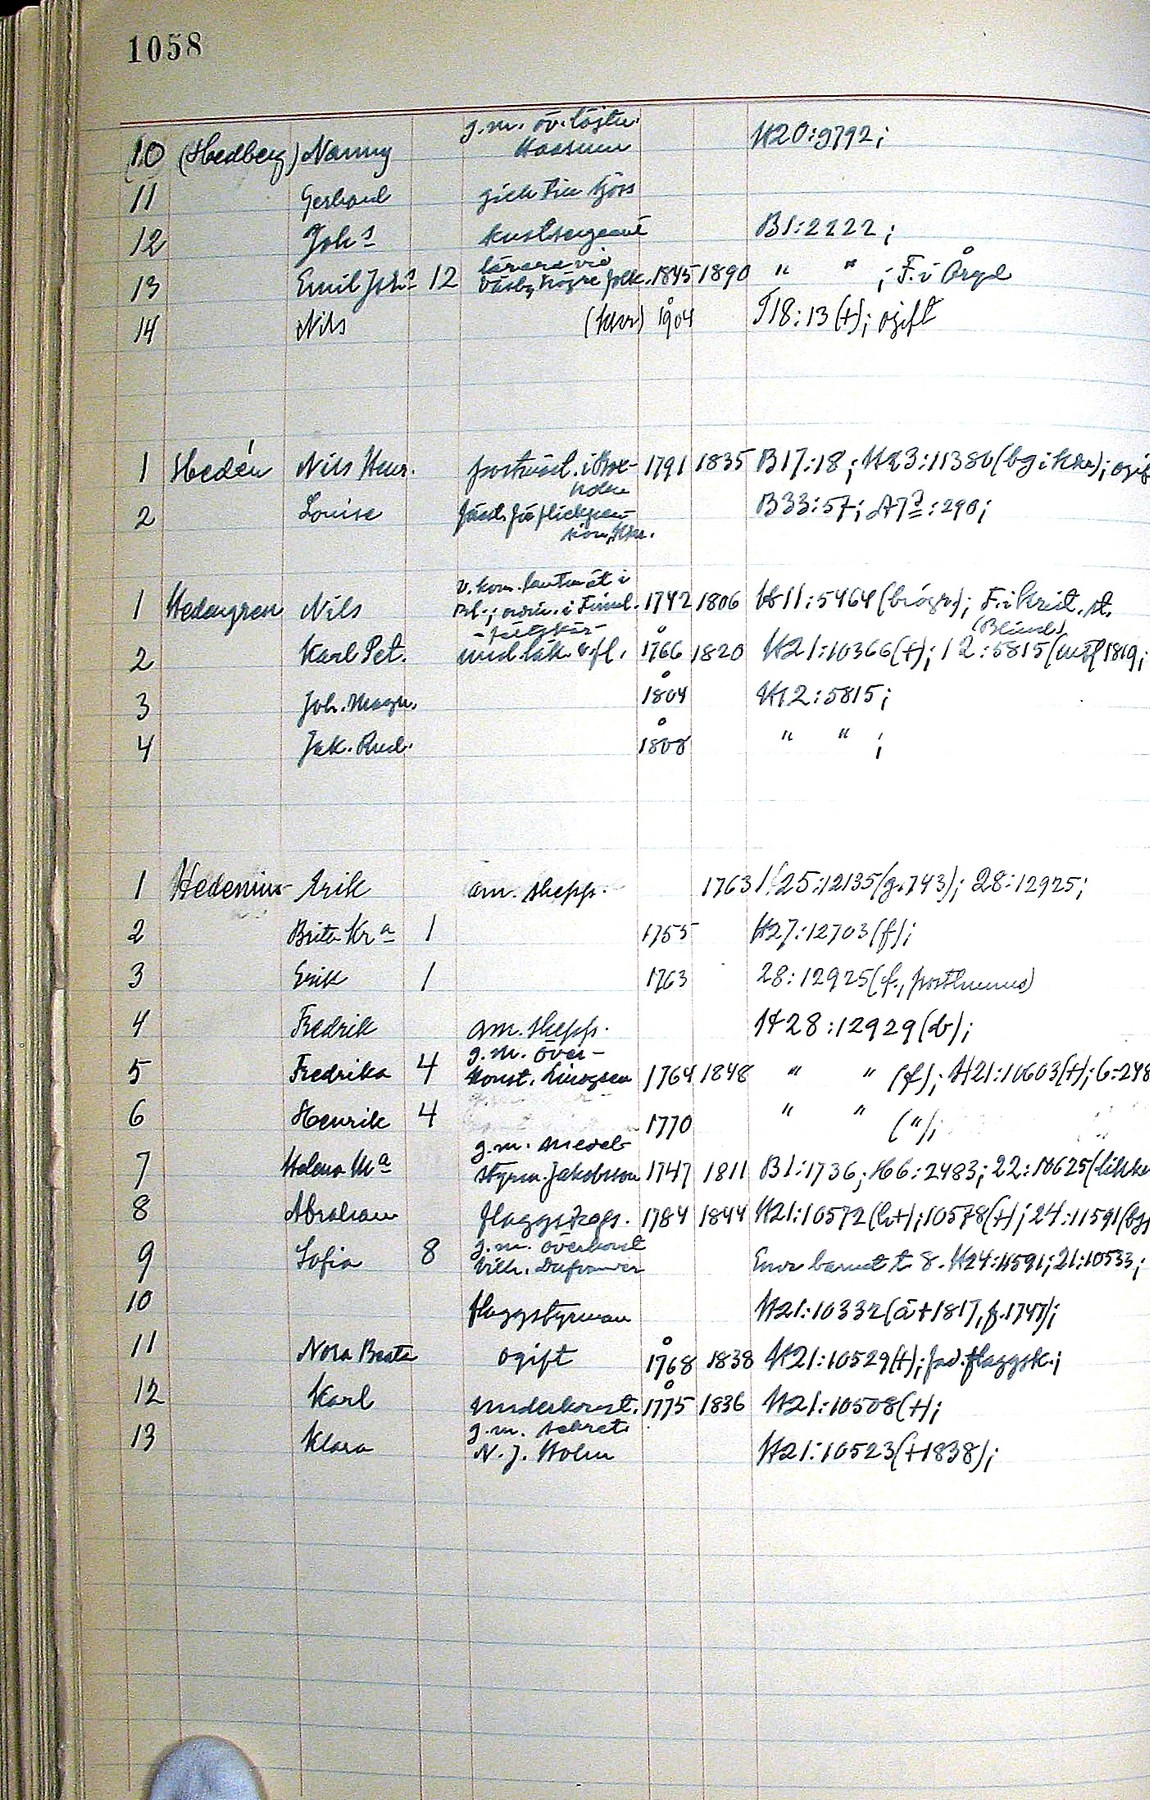 1058
g.m. öv. löjtn.
10 (Hedberg) Nanny H20:9792;
11 Gerhard gick till sjöss
12 Joh:s B1:2222;
lärare vid
13 Emil Joh:s 12 Väsby högre folk. 1845 1890 " " ; F. i Öregd
14 Nils (Khvn) 1904 T18:13(+); ogift
1 Hedén Nils Henr. 1791 1835 B17:18; H23:11380(bg i Khn); ogif
2 Louise B33:57; A7:290;
v. kom. lantmät i
1 Hedengren Nils Bl.; ordin. i Finnl. 1742 1806 H11:5464(biogr); F. i Krist. st.
(Blände)
2 Karl Pet. und. läk. v. fl. 1766 1820 H21:10366(+); 12:5815(utfl 1819;
3 Joh. Magn. 1804 H12:5815;
4 Jak. Rud. 1808 " " ;
1 Hedenius Erik am. skepp. 1763 25:12135(g.743); 28:12925;
2 Brita Kr:a 1 1755 H27:12703(f);
3 Erik 1 1763 28:12925(f., posthumus)
4 Fredrik am. skepp. H28:12929(b);
g.m. över-
5 Fredrika 4 konst. 1764 1848 " " (f); H21:10603(+); 6:248
6 Henrik 4 1770 " " (");
g.m. medel-
7 Helena M:a styrm. Jakobsson 1747 1811 B1:1736; H6:2483; 22:10625(
8 Abraham flaggskepp. 1784 1844 H21:10572(h+); 10578(+); 24:11591(bg
g.m. överkonst
9 Sofia 8 Vilh. Enda barnet t. 8. H24:11591; 21:10533;
10 flaggstyrman H21:10332(ä+1817, f.1747);
11 Nora Beata ogift 1768 1838 H21:10529(+); fad. flaggsk.;
12 Karl underkonst. 1775 1836 H21:10508(+);
g.m. sekret.
13 Klara N. J. Holm H21:10523(+1838);